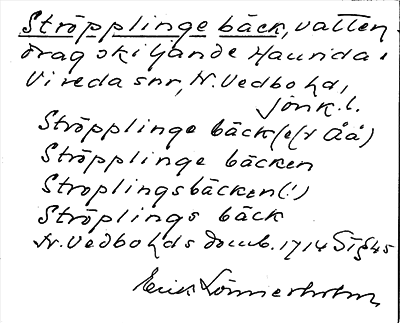 Ströpplinge bäck, vatten
drag skiljande Haurida o
Vireda snr, N. Vedbo hd,
Jönk. l.
Ströpplinge bäck (el Åå)
Ströpplinge bäcken
Stroplingsbäcken (!)
Ströplings bäck
N. Vedbo hds domb. 1714 § 45
Erik Lönnerholm